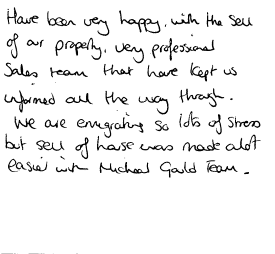 Have been very happy, with the sell
of our property, very professional
Sales team that have kept us
informed all the way through.
We are emigrating so lots of stress
but sell of house was made alot
easier with Micheal Gould Team.